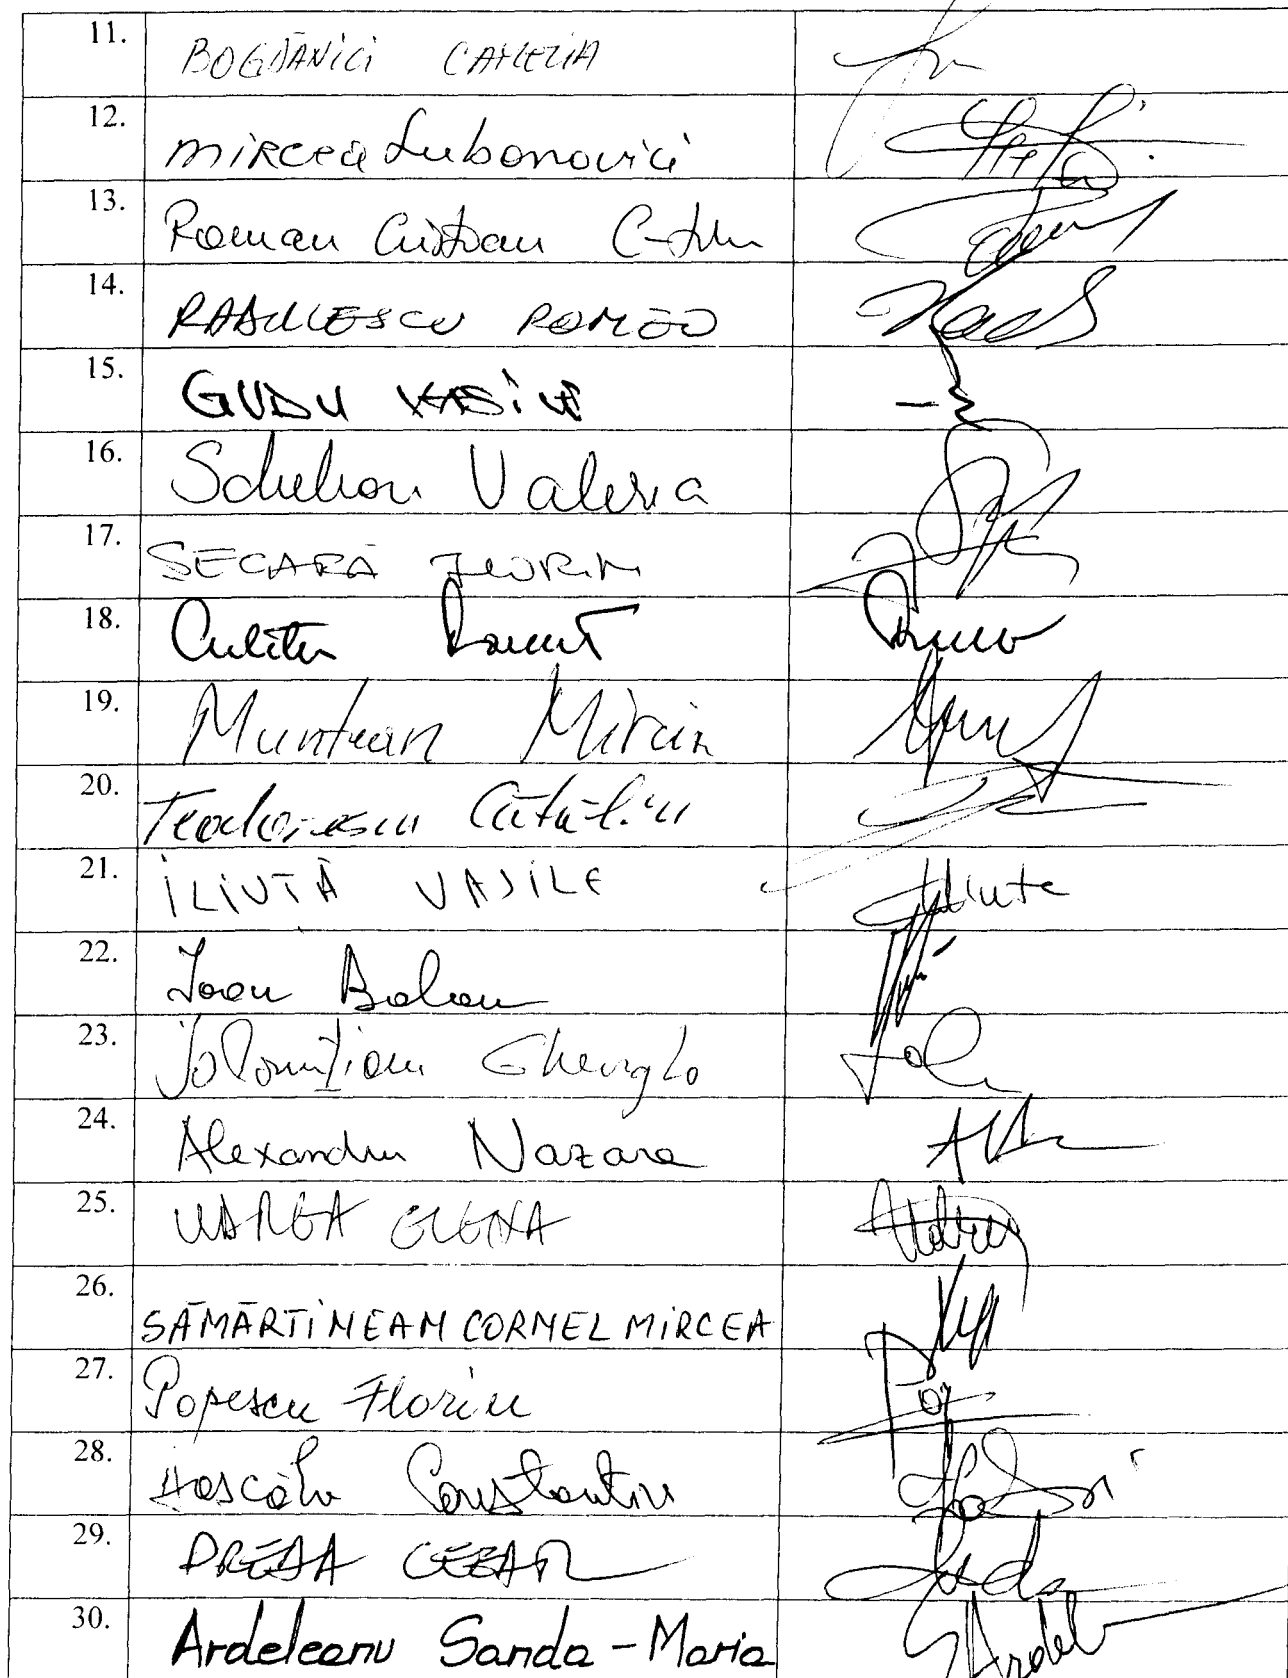 11. BOGDĂNICI CAMELIA
12. MIRCEA Lubanovici
13. Roman Cristian C-tin
14. RADULESCU ROMEO
15. GUDU VASILE
16. Schelean Valeria
17. SECARĂ FLORIN
18. Culeța
19. Muntean Mircia
20. Teodorescu Cătălin
21. ILIUȚĂ VASILE
Iliuta
22. Ioan Balan
23. Ialomițianu Gheorghe
24. Alexandru Nazare
25. UDREA ELENA
26. SĂMĂRTINEAN CORNEL MIRCEA
27. Popescu Florin
28. Dascălu Constantin
29. PREDA CEZAR
30. Ardeleanu Sanda-Maria
SArdel